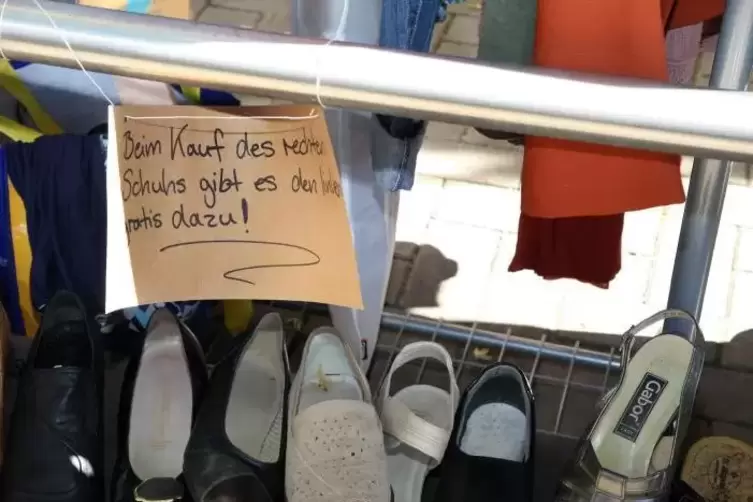 Beim Kauf des rechten
Schuhs gibt es den linken
gratis dazu!
Gabor